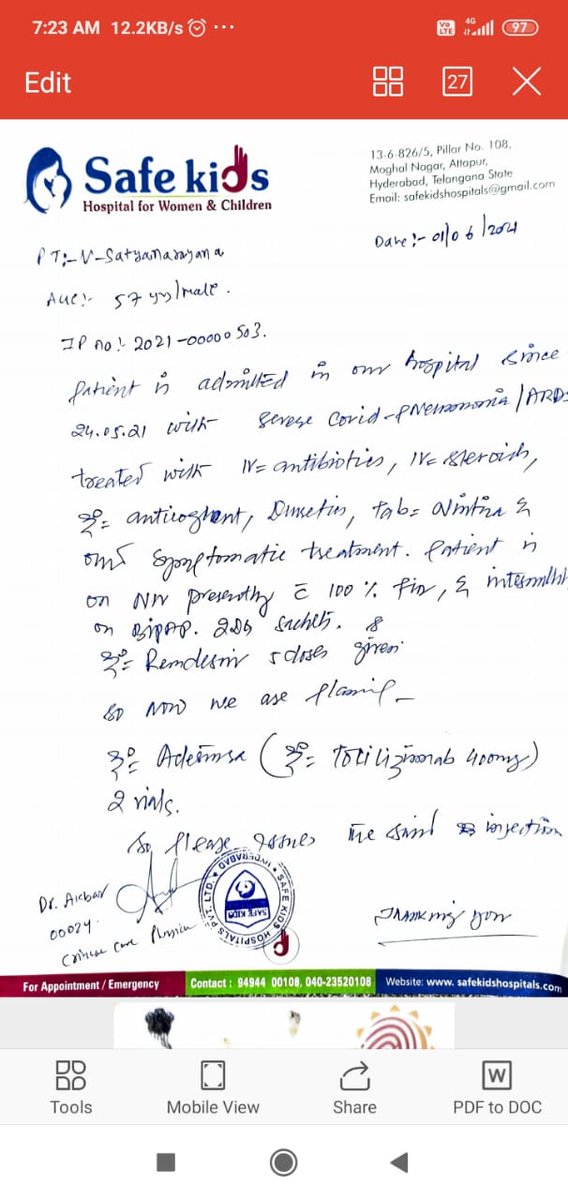 7:23 AM 12.2KB/s ...
Vo LTE 4G 97
Edit
27
Safe kids
Hospital for Women & Children
13-6-826/5, Pillar No. 108,
Moghal Nagar, Attapur,
Hyderabad, Telangana State
Email: safekidshospitals@gmail.com
Date:- 01/06/2021
PT:- V-Satyanarayana
Age:- 57 yrs/male.
IP no:- 2021-00000503.
patient is admitted in our hospital since
24.05.21 with severe covid-pneumonia/ARDS
treated with IV= antibiotics, IV= steroids,
Tab=
symptomatic treatment. Patient is
on presently c 100%
on BIPAP.
Remdesivir 5 doses given.
so now we are
(Tocilizumab 400mg)
2 vials.
so please issues the injection
Thanking you
Dr. Akbar
00024
SAFE KIDS HOSPITALS PVT. LTD.
SAFE KIDS
For Appointment / Emergency
Contact : 94944 00108, 040-23520108
Website: www. safekidshospitals.com
Tools
Mobile View
Share
PDF to DOC
W